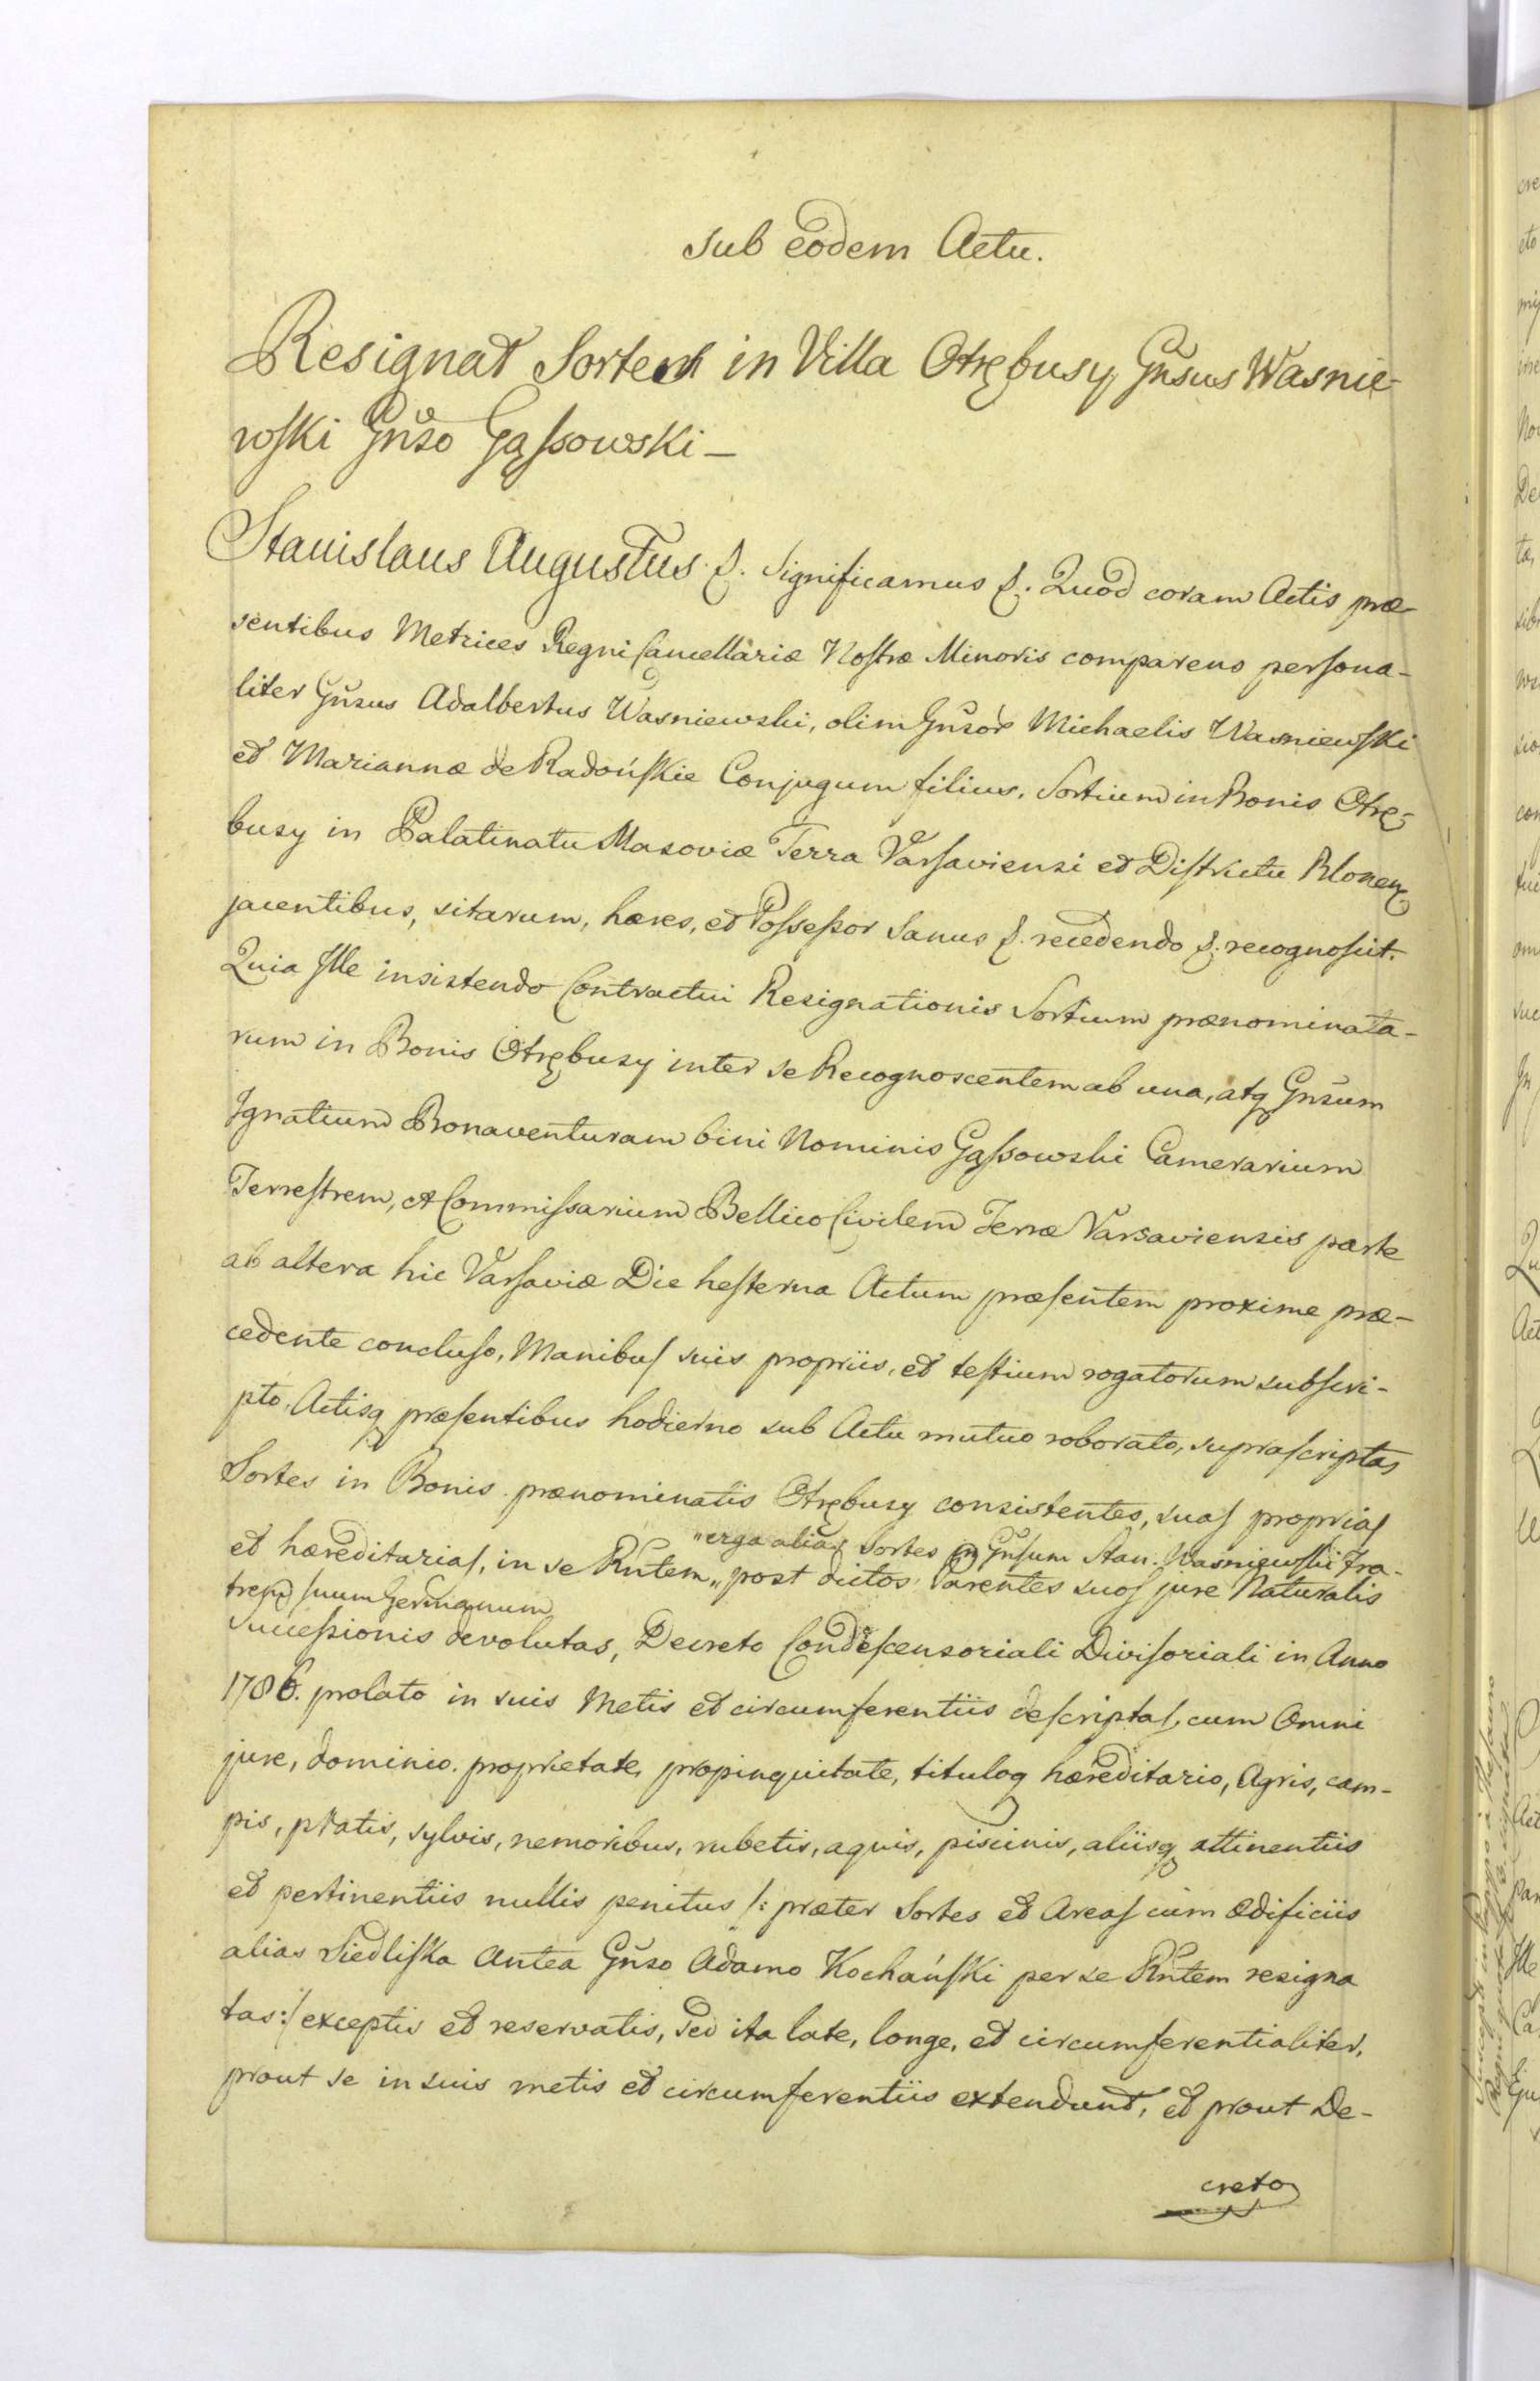 Sub eodem Actu.
Resignat Sortem in Villa Otrębusy Gnsus Wasnie-
wski Gnso Gąssowski –
Stanislaus Augustus &. Significamus &. Quod coram Actis præ-
sentibus Metrices Regni Cancellariæ Nostræ Minoris comparens persona-
liter Gnsus Adalbertus Wasniewski, olim Gnsor Michaelis Wasniewski
et Mariannæ de Radońskie Conjugum filius, Sortium in Bonis Otrę-
busy in Palatinatu Masoviæ Terra Varsaviensi et Districtu Blonen
jacentibus, sitarum, hæres, et Possessor Sanus &. recedendo &. recognoscit.
Quia Ille insistendo Contractui Resignationis Sortium prænominata-
rum in Bonis Otrębusy inter se Recognoscentem ab una, atq Gnsum
Ignatium Bonaventuram bini Nominis Gąssowski Camerarium
Terrestrem, et Commissarium Bellico Civilem Terræ Varsaviensis parte
ab altera hic Varsaviæ Die hesterna Actum præsentem proxime præ-
cedente concluso, Manibus suis propriis, et testium rogatorum subscri-
pto, Actisq præsentibus hodierno sub Actu mutuo roborato, suprascriptas
Sortes in Bonis prænominatis Otrębusy consistentes, suas proprias
"erga alias Sortes in Gnsum Stan. Wasniewski Fra-
et hæreditarias, in se Rntem " post dictos Parentes suos jure Naturalis
trem suum Germanum
Successionis devolutas, Decreto Condescensoriali Divisoriali in Anno
1786. prolato in suis Metis et circumferentiis descriptas, cum Omni
jure, dominio. proprietate, propinquitate, tituloq hæreditario, Agris, cam-
pis, pratis, sylvis, nemoribus, rubetis, aquis, piscinis, aliisq attinentiis
et pertinentiis nullis penitus /: præter Sortes et Areas cum Ædificiis
alias Siedliska Antea Gnso Adamo Kochański per se Rntem resigna
tas :/ exceptis et reservatis, sed ita late, longe, et circumferentialiter,
prout se in suis metis et circumferentiis extendunt, et prout De-
creto